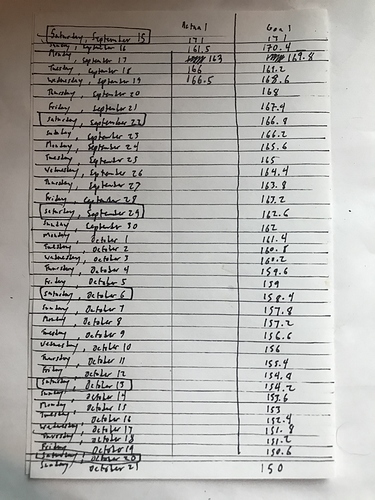 Actual Goal
Saturday, September 15 171 171
Sunday, September 16 161.5 170.4
Monday, September 17 163 169.8
Tuesday, September 18 166 169.2
Wednesday, September 19 166.5 168.6
Thursday, September 20 168
Friday, September 21 167.4
Saturday, September 22 166.8
Sunday, September 23 166.2
Monday, September 24 165.6
Tuesday, September 25 165
Wednesday, September 26 164.4
Thursday, September 27 163.8
Friday, September 28 163.2
Saturday, September 29 162.6
Sunday, September 30 162
Monday, October 1 161.4
Tuesday, October 2 160.8
Wednesday, October 3 160.2
Thursday, October 4 159.6
Friday, October 5 159
Saturday, October 6 158.4
Sunday, October 7 157.8
Monday, October 8 157.2
Tuesday, October 9 156.6
Wednesday, October 10 156
Thursday, October 11 155.4
Friday, October 12 154.8
Saturday, October 13 154.2
Sunday, October 14 153.6
Monday, October 15 153
Tuesday, October 16 152.4
Wednesday, October 17 151.8
Thursday, October 18 151.2
Friday, October 19 150.6
Saturday, October 20
Sunday, October 21 150